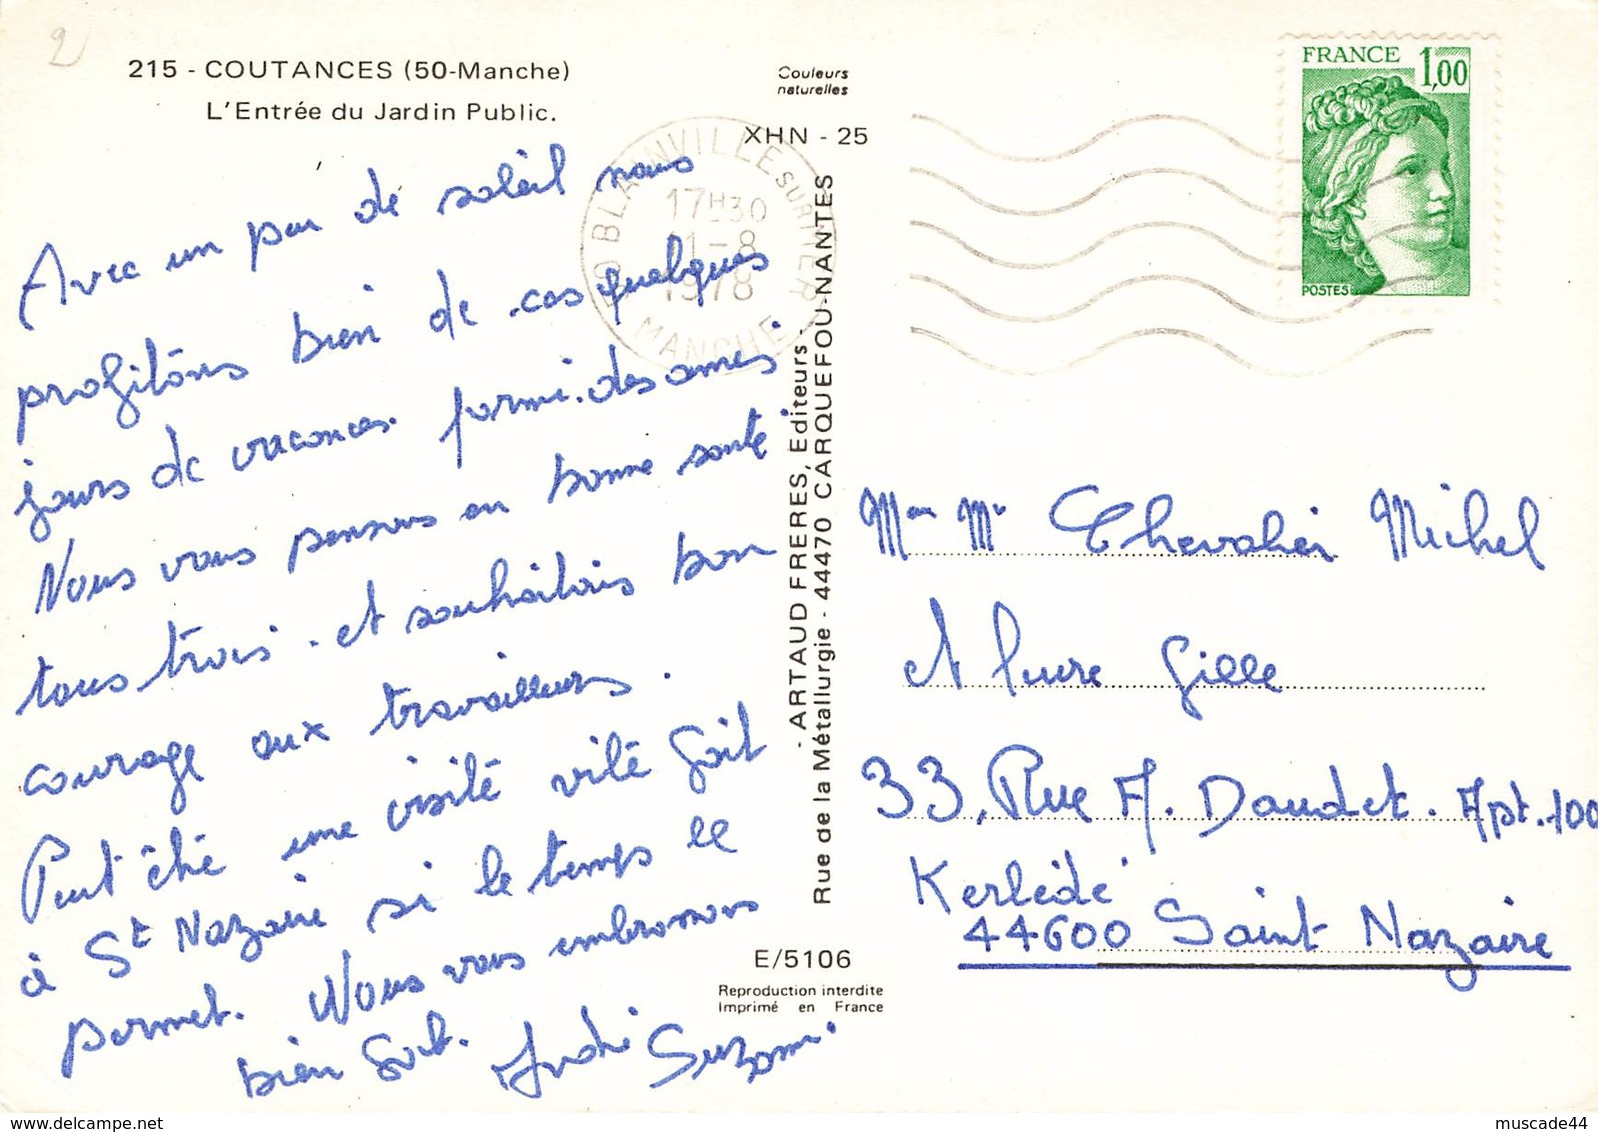 2
215 - COUTANCES (50-Manche)
L'Entrée du Jardin Public.
Couleurs
naturelles
XHN - 25
50 BLAINVILLE SUR MER
17H30
11-8
1978
MANCHE
FRANCE 1,00
POSTES
Avec un peu de soleil nous
profitons bien de ces quelques
jours de vacances parmi des amies
Nous vous pensons en bonne santé
tous trois. et souhaitons bon
courage aux travailleurs.
Peut être une visite vite fait
à St Nazaire si le temps le
permet. Nous vous embrassons
bien fort. André Suzanne
- ARTAUD FRERES, Editeurs -
Rue de la Métallurgie - 44470 CARQUEFOU-NANTES
E/5106
Reproduction interdite
Imprimé en France
Chevalier Michel
Gille
33, Rue A. Daudet. Apt. 100
Kerlédé
44600 Saint Nazaire
www.delcampe.net
muscade44